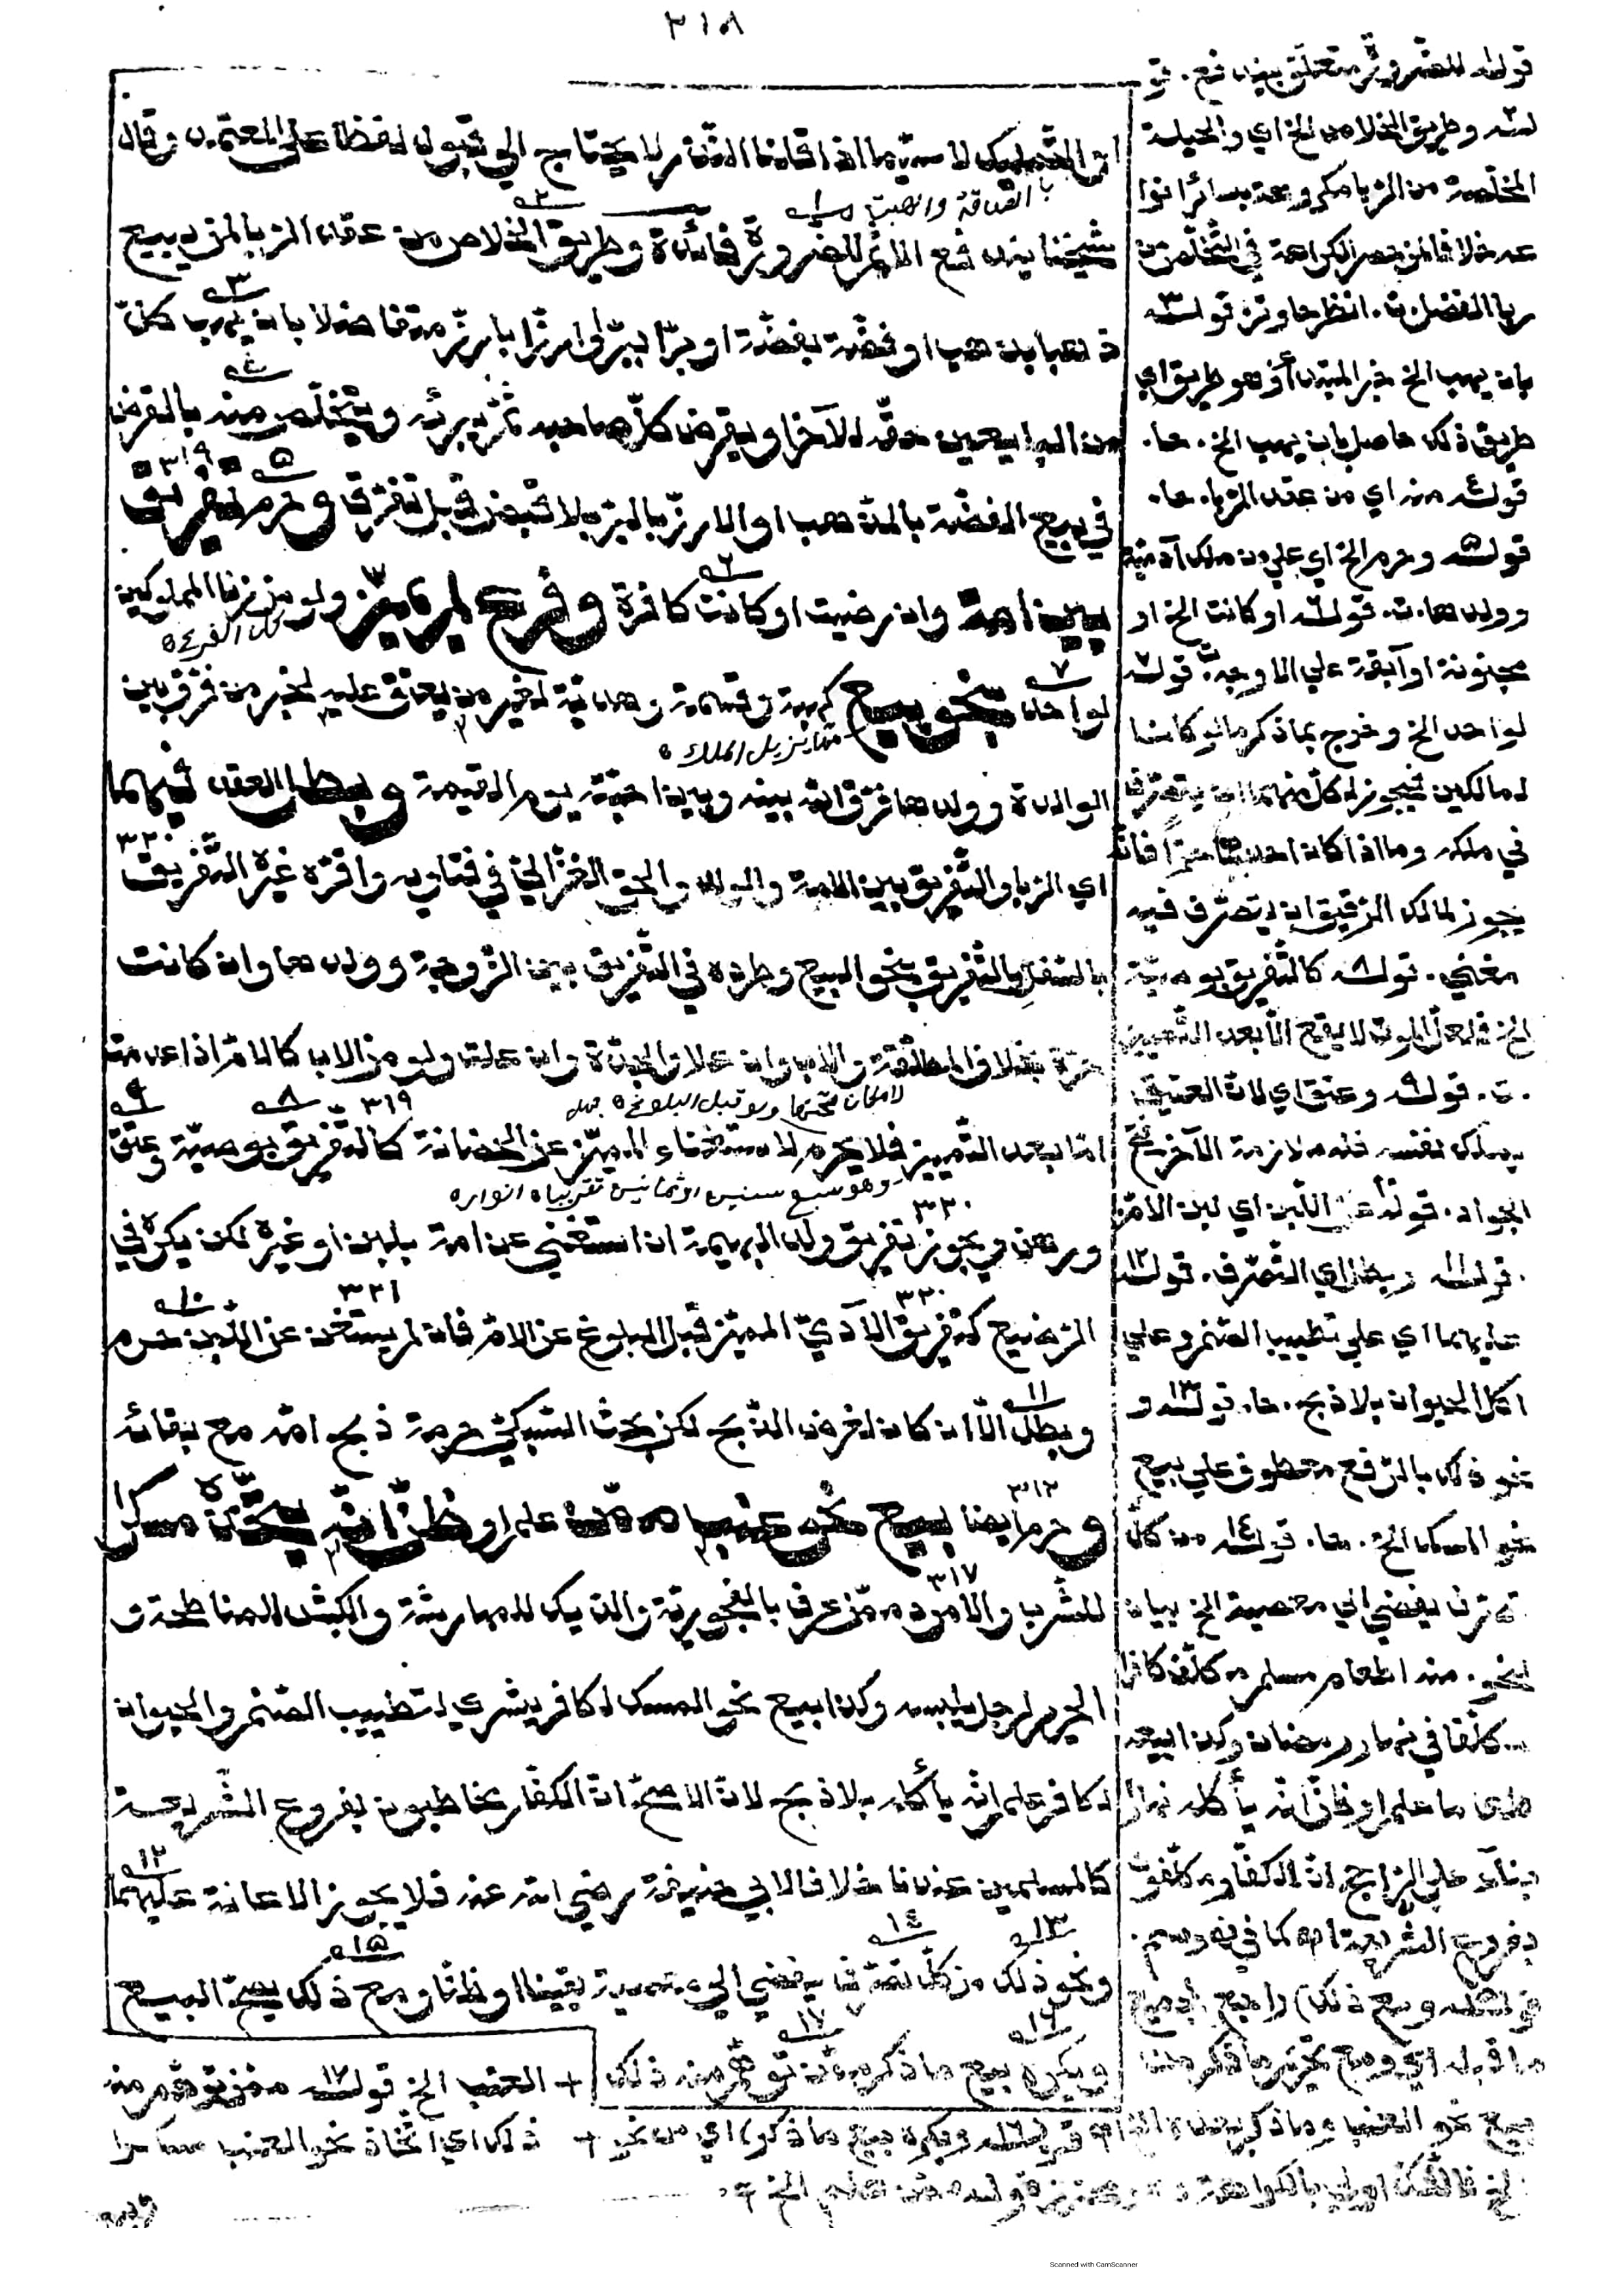 ٣١٨
ان التمليك لا سيما اذا قلنا النذر لا يحتاج الي قبول لفظا علي المعتمد وقال
بالصدقة والهبة
شيخنا ينذر فع الاثم للضرورة فائدة وطريق الخلاص من عقد الربا لمن يبيع
ذهبا بذهب او فضة بفضة او برا ببر او ارزا بارز متفاضلا بان يهب كل
من البايعين حقه للآخر او يقرض كل صاحبه ثم يبرئه ويتخلص منه بالقرض
٣١٩
في بيع الفضة بالذهب او الارز بالبر بلا قبض قبل تفرق وحرم تفريق
بين امة وان رضيت او كانت كافرة وفرع لم يميز ولو من زنا المملوكين
لواحد بنحو بيع كهبة وقسمة وهدية لغير من يعتق عليه لخبر من فرق بين
مما يزيل الملك
الوالدة وولدها فرق الله بينه وبين احبته يوم القيمة وبطل العقد فيهما
٣٢٠
اي الربا والتفريق بين الامة والولد والحق الغزالي في فتاويه واقره غيره التفريق
بالسفر بالتفريق بنحو البيع وطرده في التفريق بين الزوجة وولدها وان كانت
حرة بخلاف المطلقة والاب وان علا والجدة وان علت ولو من الاب كالام اذا عدمت
٣١٩
اما بعد التمييز فلا يحرم لاستغناء المميز عن الحضانة كالتفريق بوصية وعتق
وهو سبع سنين او ثمانية تقريبا ه انوار ه
ورهن ويجوز تفريق ولد البهيمة ان استغني عن امه بلبن او غيره لكن يكره في
٣٢٠ ٣٢١
الرضيع كتفريق الآدمي المميز قبل البلوغ عن الام فان لم يستغن عن اللبن حرم
وبطل الا ان كان لغرض الذبح لكن بحث السبكي حرمة ذبح امه مع بقائه
٣١٢
وحرم ايضا بيع نحو عنب ممن علم او ظن انه يتخذه مسكرا
٣١٧
للشرب والامرد ممن عرف بالفجور به والديك للمهارشة والكبش للمناطحة و
الحرير لرجل يلبسه وكذا بيع نحو المسك لكافر يشتري لتطييب الصنم والحيوان
لكافر علم انه يأكله بلا ذبح لان الاصح ان الكفار مخاطبون بفروع الشريعة
كالمسلمين عندنا خلافا لابي حنيفة رضي الله عنه فلا يجوز الاعانة عليهما
ونحو ذلك من كل تصرف يفضي الي معصية يقينا او ظنا ومع ذلك يصح البيع
ويكره بيع ما ذكر ممن توهم منه ذلك
قوله للضرورة متعلق بينذفع. قو
له وطريق الخلاص الخ اي والحيلة
المخلصة من الربا مكروهة بسائر انوا
عه خلافا لمن حصر الكراهة في التخلص من
ربا الفضل. انظر حاوتر قوله
بان يهب الخ خبر المبتدأ وهو طريق اي
طريق ذلك حاصل بان يهب الخ. حا.
قوله منه اي من عقد الربا. حا.
قوله وحرم الخ اي علي من ملك آدمية
وولدها.ت. قوله او كانت الخ او
مجنونة او آبقة علي الاوجه. قوله
لواحد الخ وخرج بما ذكر ما لو كانا
لمالكين فيجوز لكل منهما ان يتصرف
في ملكه وما اذا كان احدهما حرا فانه
يجوز لمالك الرقيق ان يتصرف فيه
مغني. قوله كالتفريق بوصية
الخ فلعل الموت لا يقع الا بعد التمييز
.ت. قوله وعتق اي لان العتيق
يملك نفسه فله ملازمة الآخر فتح
الجواد. قوله عن اللبن اي لبن الام
. قوله وبطل اي التصرف. قوله
عليهما اي علي تطييب الصنم وعلي
اكل الحيوان بلا ذبح. حا. قوله و
نحو ذلك بالرفع معطوف علي بيع
نحو المسك الخ. حا. قوله من كل
تصرف يفضي الي معصية الخ بيان
لنحو. منه اطعام مسلم مكلف كافرا
مكلفا في نهار رمضان وكذا بيعه
طعاما علم او ظن انه يأكله نهارا
بناء علي الراجح ان الكفار مكلفون
بفروع الشريعة اه كما في
قوله ومع ذلك) راجع لجميع
ما قبله اي ومع تحريم ما ذكر من
بيع نحو العنب وما ذكر بعده الخ قوله ويكره بيع ما ذكر) اي من نحو +
+ العنب الخ قوله ممن توهم منه
ذلك اي اتخاذ نحو العنب مسكرا
الخ
Scanned with CamScanner